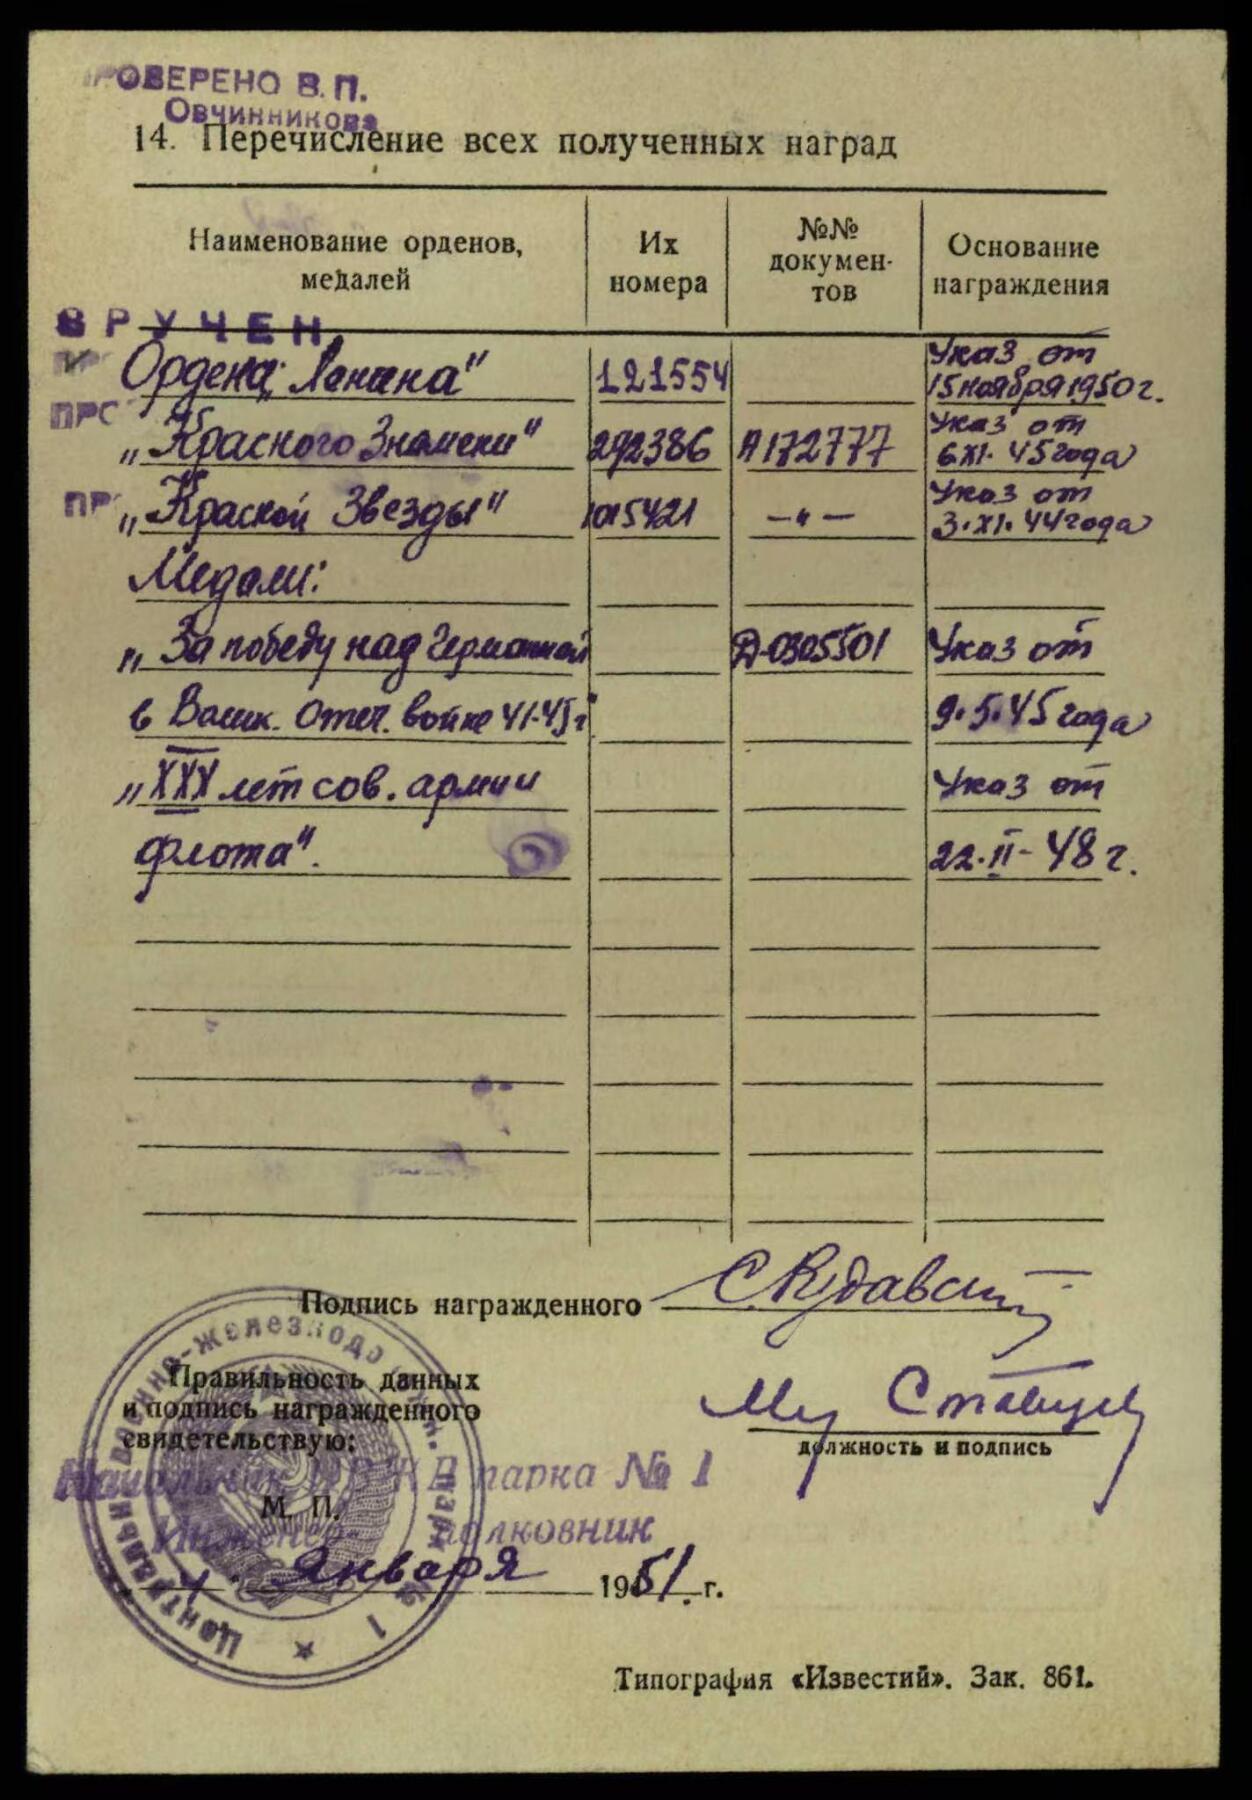 ПРОВЕРЕНО В. П.
Овчинникова
14. Перечисление всех полученных наград
Наименование орденов, медалей
Их номера
№№ документов
Основание награждения
ВРУЧЕН
Ордена: „Ленина" 121554 Указ от 15 ноября 1950 г.
ПРО
„Красного Знамени" 292386 А172777 Указ от 6 XI. 45 года
ПР
„Краской Звезды" 1015421 —"— Указ от 3. XI. 44 года
Медали:
„За победу над Германией Д-0305501 Указ от
в Велик. Отеч. войне 41-45 г" 9.5.45 года
„XXX лет сов. армии Указ от
флота". 22.II-48 г.
Подпись награжденного С. Кудавский
Правильность данных
и подпись награжденного
свидетельствую:
должность и подпись
Начальник парка № 1
М. П.
Инженер-полковник
января 1951 г.
Центральный военно-железнодорожн. парк № 1
Типография «Известий». Зак. 861.